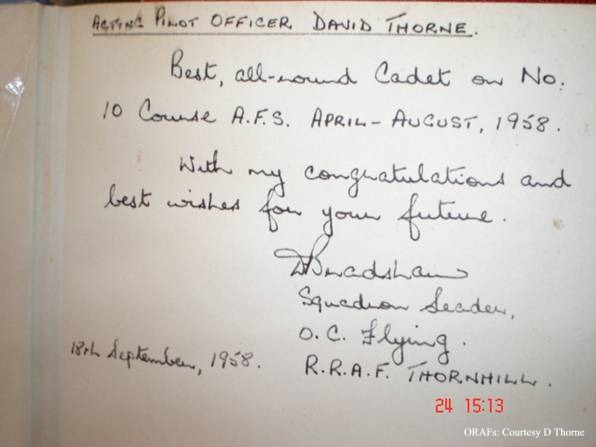 ACTING PILOT OFFICER DAVID THORNE.
Best, all-round Cadet on No:
10 Course A.F.S. APRIL - AUGUST, 1958.
With my congratulations and
best wishes for your future.
D Bradshaw
Squadron Leader,
O.C. Flying.
18th September, 1958.
R.R.A.F. THORNHILL.
24 15:13
ORAFs: Courtesy D Thorne